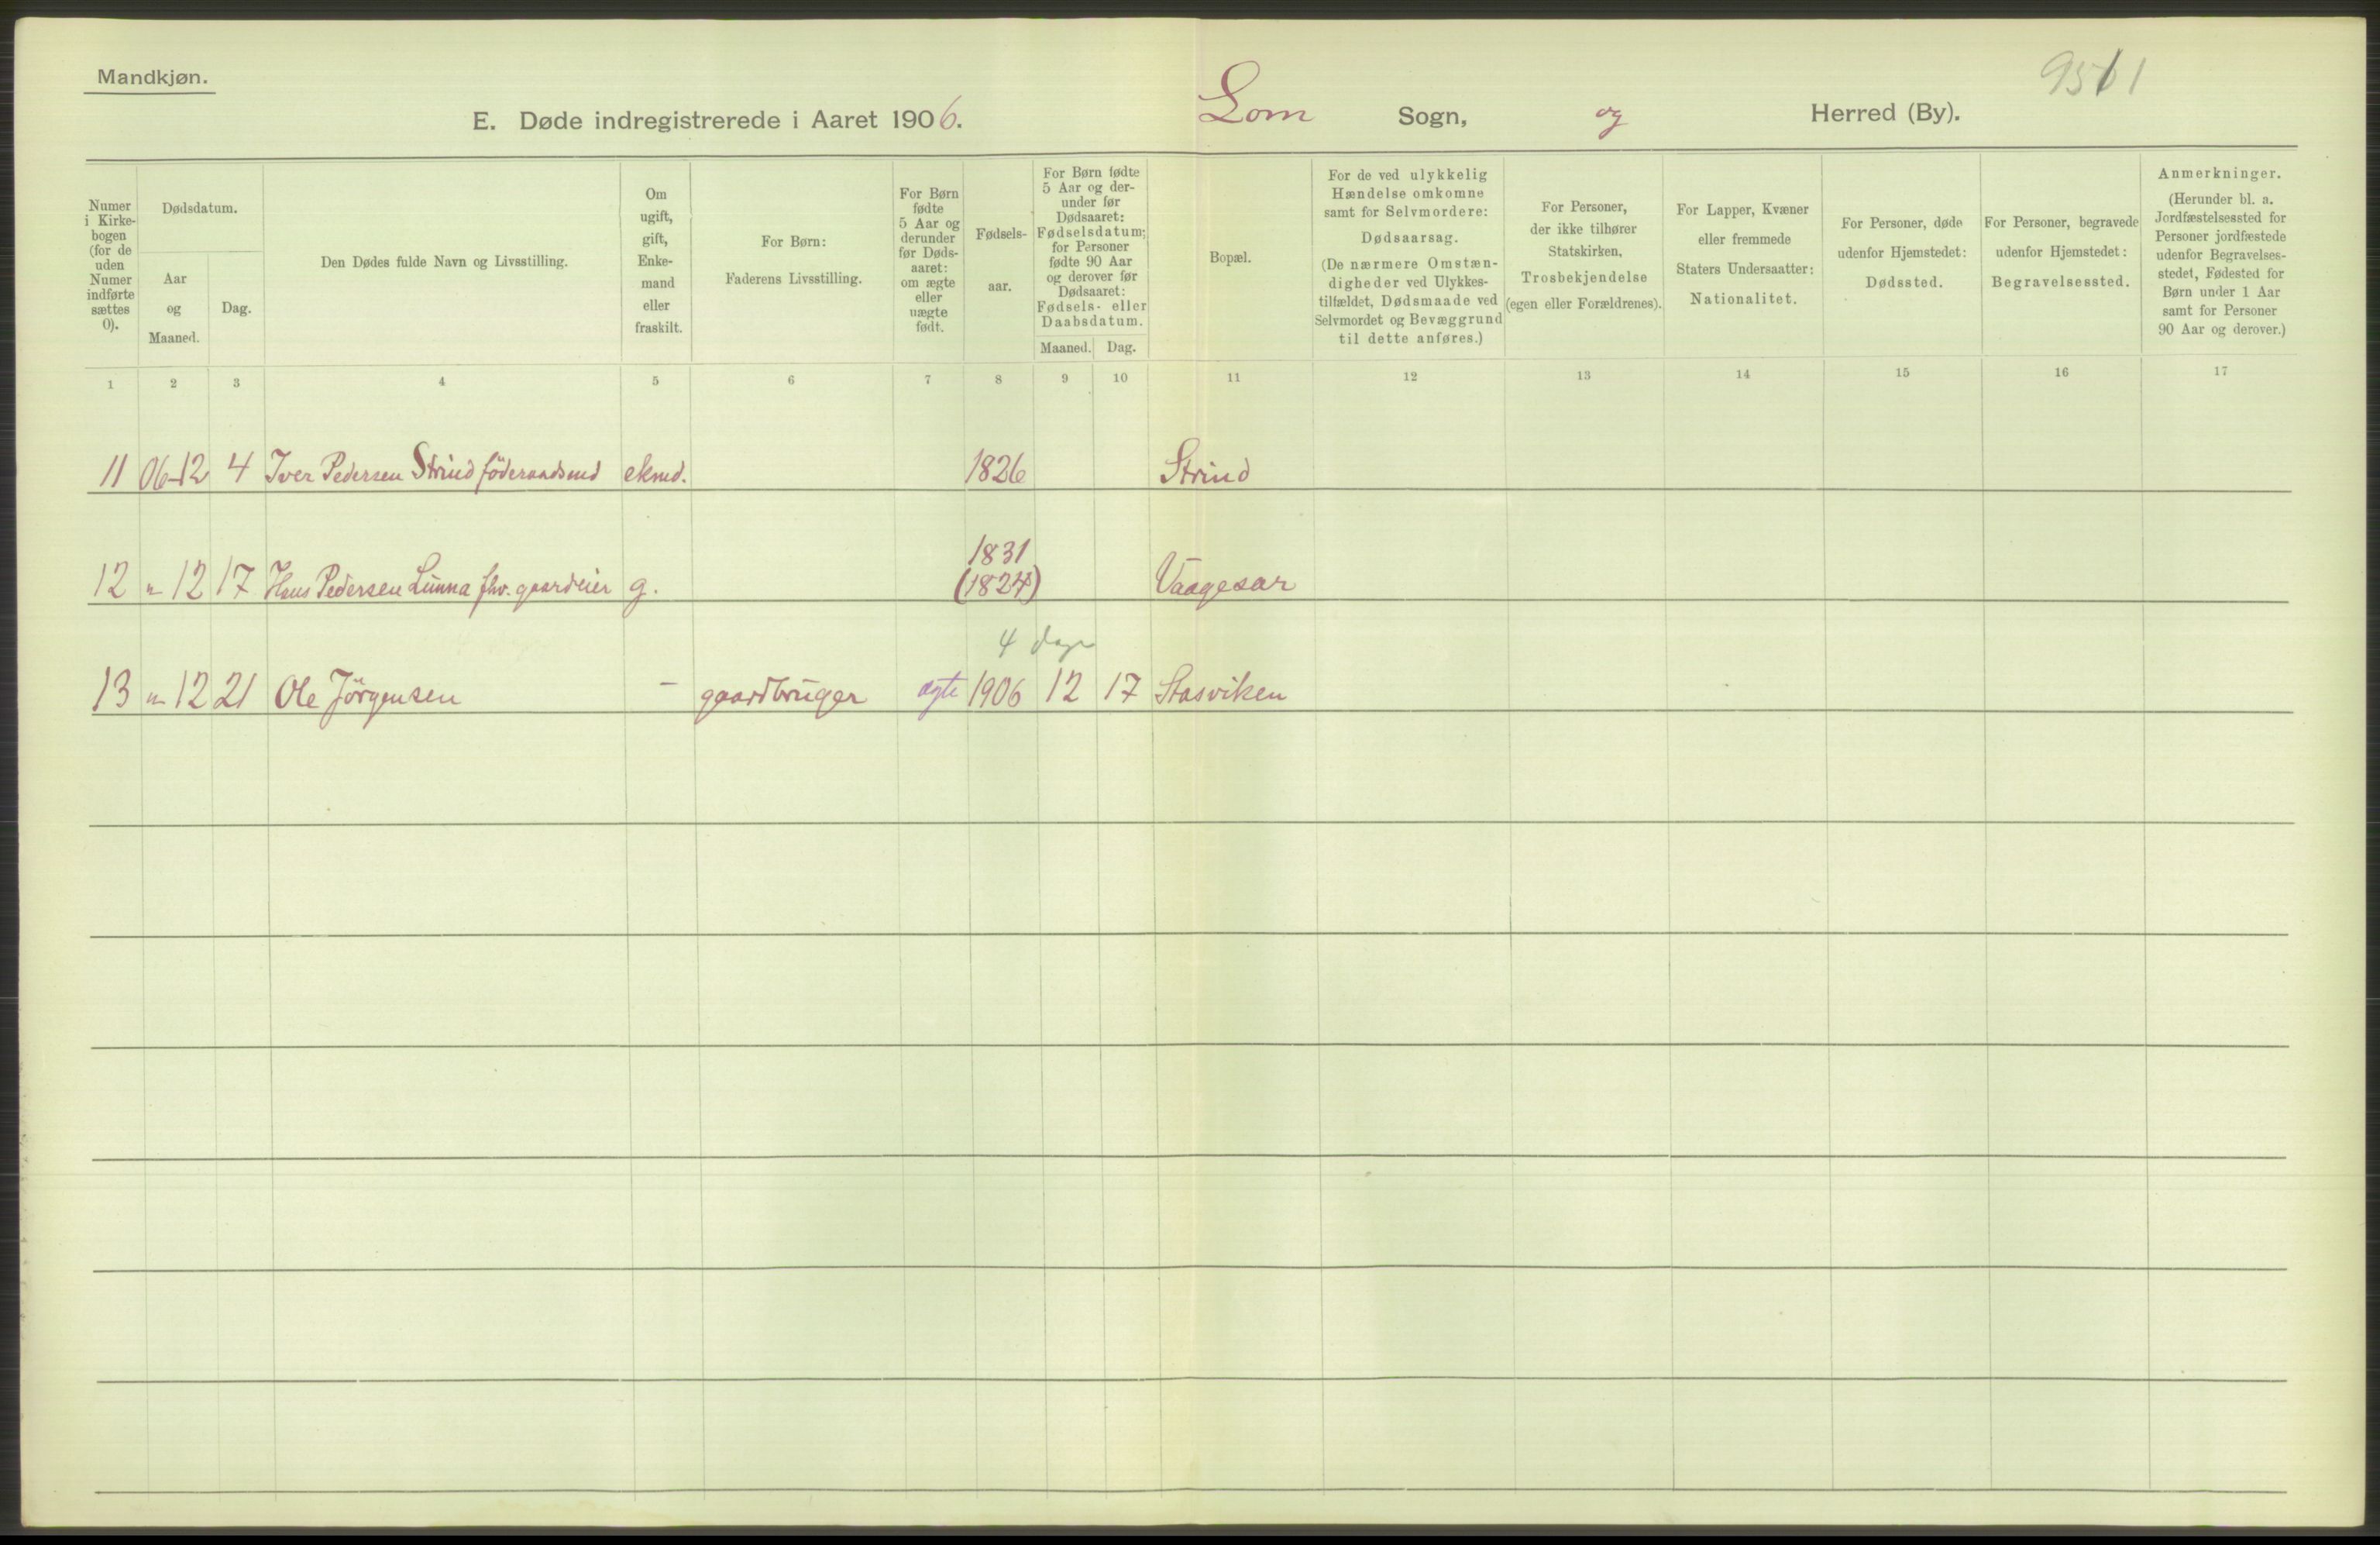 Mandkjøn.
E. Døde indregistrerede i Aaret 1906. Lom Sogn, og Herred (By).
Numer i Kirkebogen (for de uden Numer indførte sættes 0).
Dødsdatum.
Aar og Maaned.
Dag.
Den Dødes fulde Navn og Livsstilling.
Om ugift, gift, Enkemand eller fraskilt.
For Børn: Faderens Livsstilling.
For Børn fødte 5 Aar og derunder før Dødsaaret: om ægte eller uægte født.
Fødselsaar.
For Børn fødte 5 Aar og derunder før Dødsaaret: Fødselsdatum; for Personer fødte 90 Aar og derover før Dødsaaret: Fødsels- eller Daabsdatum.
Maaned. Dag.
Bopæl.
For de ved ulykkelig Hændelse omkomne samt for Selvmordere: Dødsaarsag. (De nærmere Omstændigheder ved Ulykkestilfældet, Dødsmaade ved Selvmordet og Bevæggrund til dette anføres.)
For Personer, der ikke tilhører Statskirken, Trosbekjendelse (egen eller Forældrenes).
For Lapper, Kvæner eller fremmede Staters Undersaatter: Nationalitet.
For Personer, døde udenfor Hjemstedet: Dødssted.
For Personer, begravede udenfor Hjemstedet: Begravelsessted.
Anmerkninger. (Herunder bl. a. Jordfæstelsessted for Personer jordfæstede udenfor Begravelsesstedet, Fødested for Børn under 1 Aar samt for Personer 90 Aar og derover.)
1 2 3 4 5 6 7 8 9 10 11 12 13 14 15 16 17
11 06-12 4 Iver Pedersen Strind föderaadsmd ekmd. 1826 Strind
1831
12 " 12 17 Hans Pedersen Lunna fhv. gaardeier g. (1824) Vaagesar
4 dage
13 " 12 21 Ole Jörgensen - gaardbruger ægte 1906 12 17 Stasviken